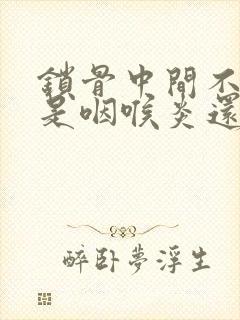 鎖骨中間不
是咽喉炎還
醉卧夢浮生